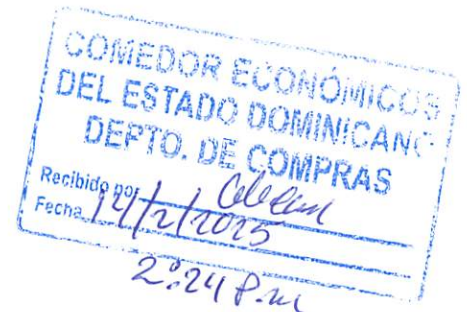 COMEDOR ECONÓMICOS
DEL ESTADO DOMINICANO
DEPTO. DE COMPRAS
Recibido por
Fecha 14/2/2025
2:24 P.m